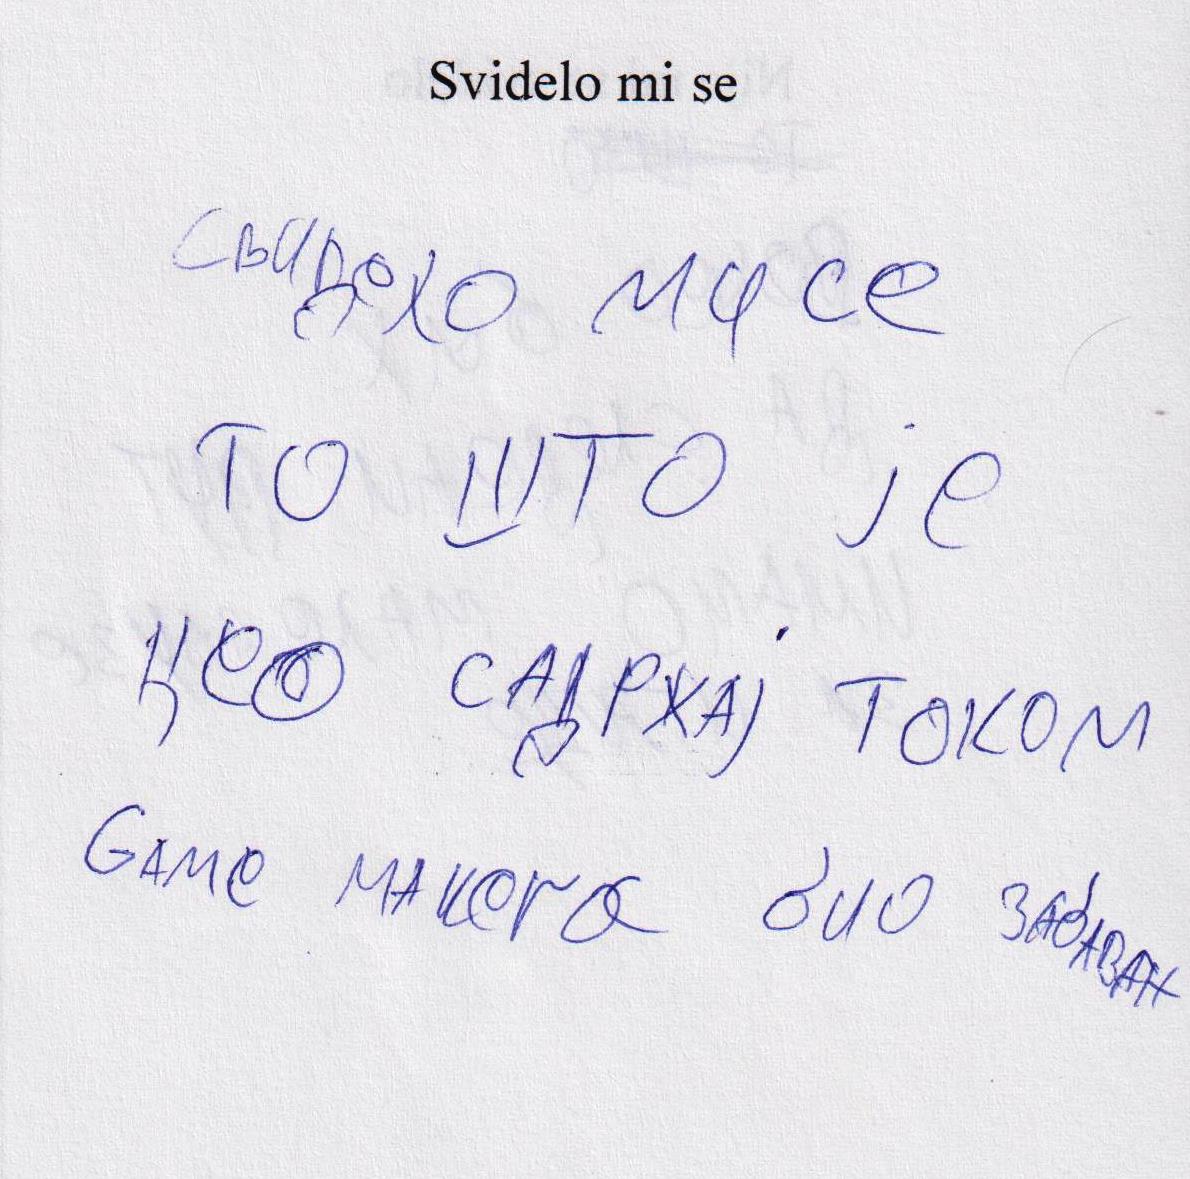 Svidelo mi se
Свидело ми се
то што је
цео садржај током
Game макега био забаван